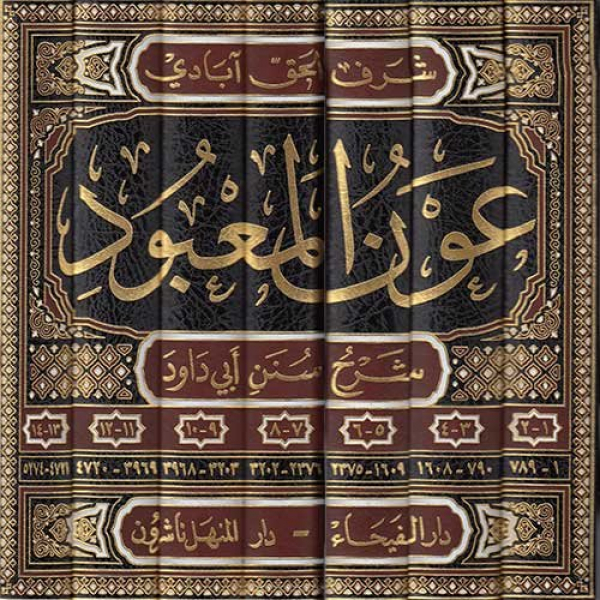 شرف الحقّ آبادي
عَوْنُ المَعْبُودِ
شَرْحُ سُنَنِ أبي دَاود
١-٢ ٣-٤ ٥-٦ ٧-٨ ٩-١٠ ١١-١٢ ١٣-١٤
١-٧٨٩ ٧٩٠-١٦٠٨ ١٦٠٩-٢٣٧٥ ٢٣٧٦-٣٢٠٢ ٣٢٠٣-٣٩٦٨ ٣٩٦٩-٤٧٢٠ ٤٧٢١-٥٢٧٤
دار الفيحاء - دار المنهل ناشرون